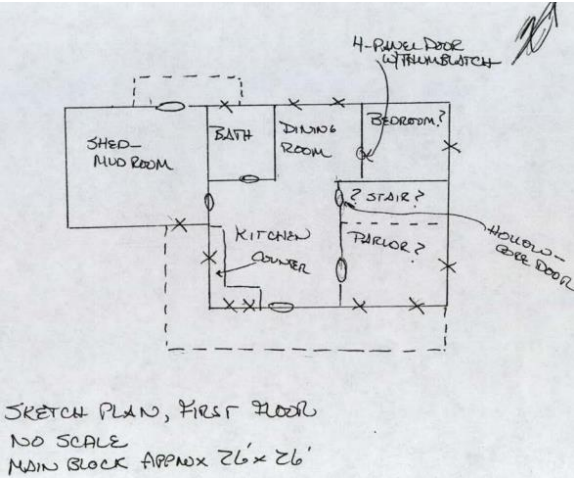 4-PANEL DOOR
W/THUMBLATCH
BATH
DINING
ROOM
BEDROOM?
SHED-
MUD ROOM
? STAIR?
KITCHEN
COUNTER
PARLOR?
HOLLOW-
CORE DOOR
SKETCH PLAN, FIRST FLOOR
NO SCALE
MAIN BLOCK APPROX 26' x 26'